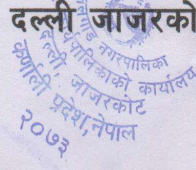 दल्ली जाजरको
नगरपालिका
र्यपालिकाको कार्यालय
दल्ली, जाजरकोट
कर्णाली प्रदेश, नेपाल
२०७३